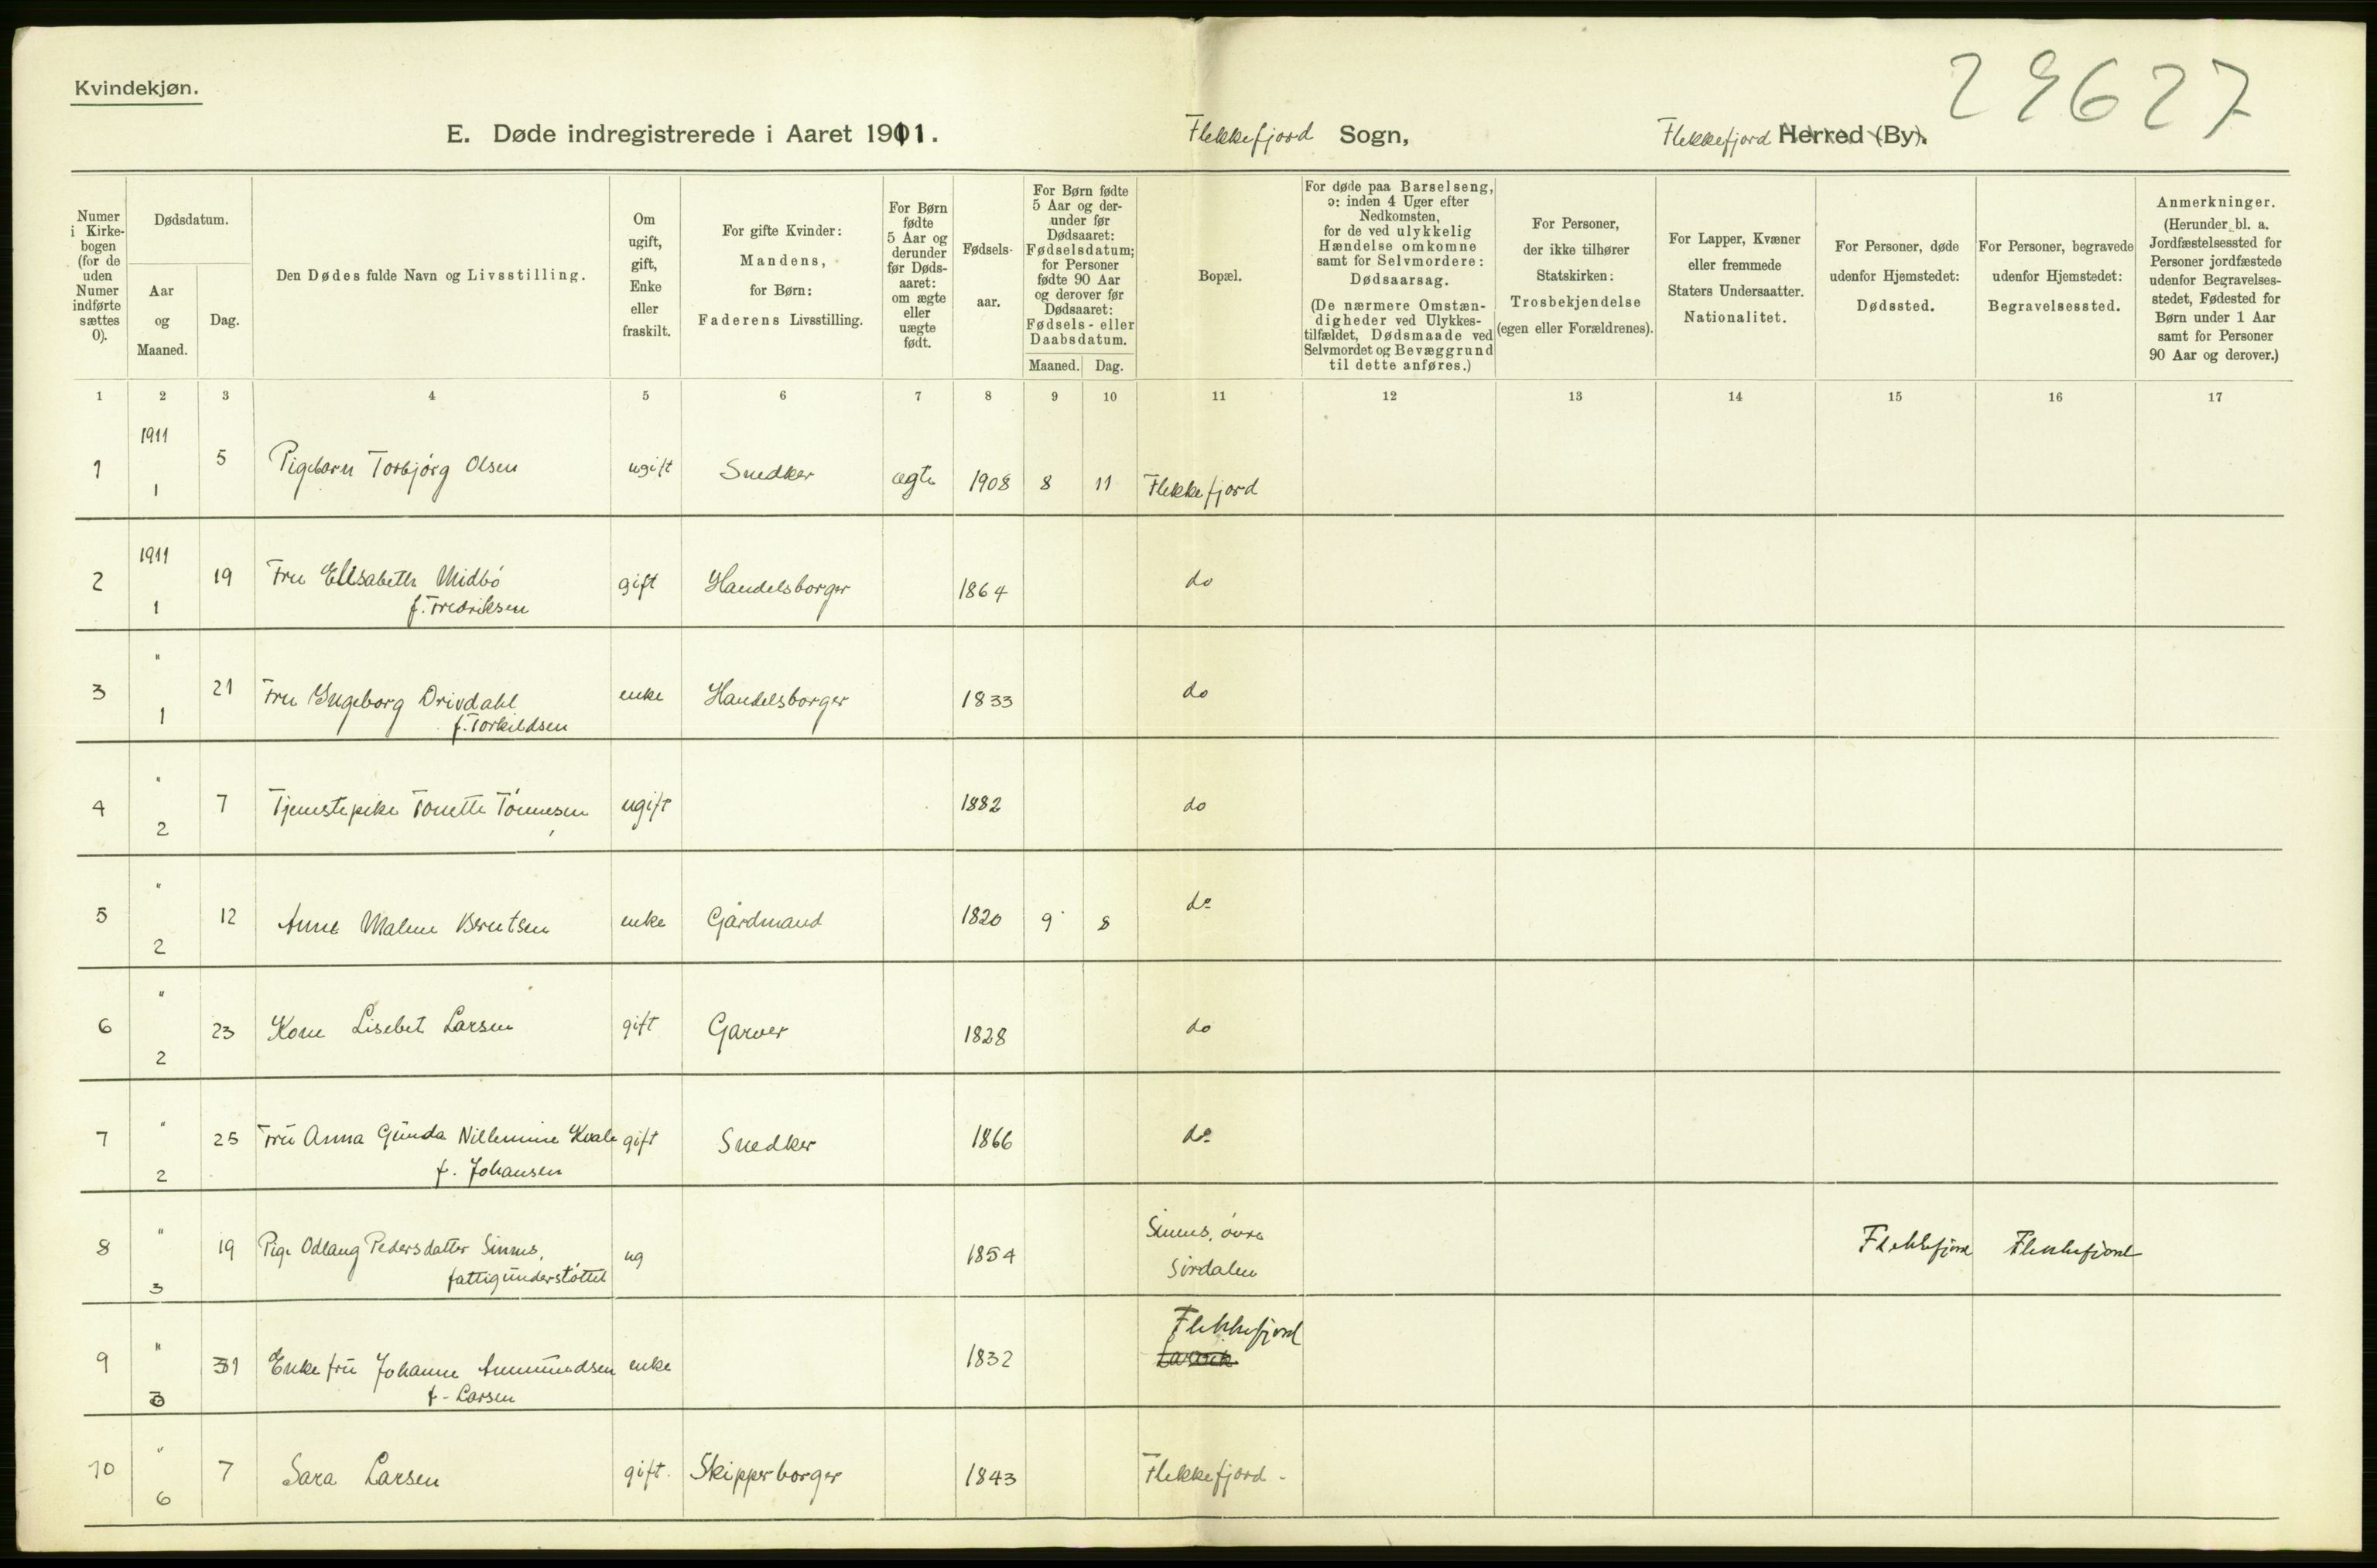 29627
Kvindekjøn.
E. Døde indregistrerede i Aaret 1911.
Flekkefjord Sogn,
Flekkefjord Herred (By).
Numer i Kirke-bogen (for de uden Numer indførte sættes 0).
Dødsdatum.
Aar og Maaned.
Dag.
Den Dødes fulde Navn og Livsstilling.
Om ugift, gift, Enke eller fraskilt.
For gifte Kvinder: Mandens, for Børn: Faderens Livsstilling.
For Børn fødte 5 Aar og derunder før Døds-aaret: om ægte eller uægte født.
Fødsels-aar.
For Børn fødte 5 Aar og der-under før Dødsaaret: Fødselsdatum; for Personer fødte 90 Aar og derover før Dødsaaret: Fødsels- eller Daabsdatum.
Maaned. Dag.
Bopæl.
For døde paa Barselseng, ɔ: inden 4 Uger efter Nedkomsten, for de ved ulykkelig Hændelse omkomne samt for Selvmordere: Dødsaarsag. (De nærmere Omstæn-digheder ved Ulykkes-tilfældet, Dødsmaade ved Selvmordet og Bevæggrund til dette anføres.)
For Personer, der ikke tilhører Statskirken: Trosbekjendelse (egen eller Forældrenes).
For Lapper, Kvæner eller fremmede Staters Undersaatter. Nationalitet.
For Personer, døde udenfor Hjemstedet: Dødssted.
For Personer, begravede udenfor Hjemstedet: Begravelsessted.
Anmerkninger. (Herunder bl. a. Jordfæstelsessted for Personer jordfæstede udenfor Begravelses-stedet, Fødested for Børn under 1 Aar samt for Personer 90 Aar og derover.)
1 2 3 4 5 6 7 8 9 10 11 12 13 14 15 16 17
1 1911 1 5 Pigebarn Torbjórg Olsen ugift Snedker ægte 1908 8 11 Flekkefjord
2 1911 1 19 Fru Elisabeth Midbó gift Handelsborger 1864 do
f. Fredriksen
3 " 1 21 Fru Ingeborg Drivdahl enke Handelsborger 1833 do
f. Torkildsen
4 " 2 7 Tjenestepike Tonette Tónnesen ugift 1882 do
5 " 2 12 Anne Malene Berntsen enke Gårdmand 1820 9 8 do
6 " 2 23 Kone Lisebet Larsen gift Garver 1828 do
7 " 2 25 Fru Anna Gunda Nillemine Kvale gift Snedker 1866 do
f. Johansen
8 " 3 19 Pige Odlaug Pedersdatter Sinnes, ug 1854 Sinnes, óvre Flekkefjord Flekkefjord
fattigunderstóttet Sirdalen
9 " 3 31 Enkefru Johanne Ammundsen enke 1832 Flekkefjord
f. Larsen Larvik
10 " 6 7 Sara Larsen gift. Skipperborger 1843 Flekkefjord -